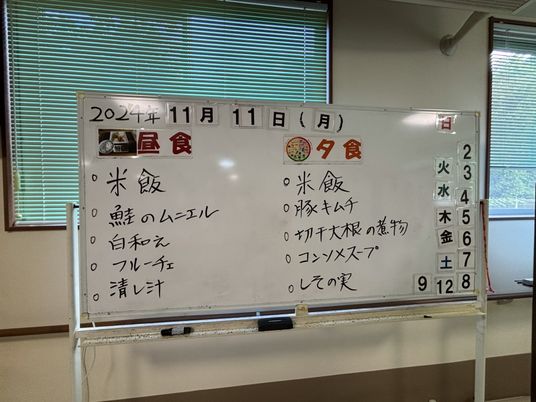 2024年 11月 11日 (月)
昼食
米飯
鮭のムニエル
白和え
フルーチェ
清し汁
夕食
米飯
豚キムチ
切干大根の煮物
コンソメスープ
しその実
日
2
火 3
水 4
木 5
金 6
土 7
9 12 8